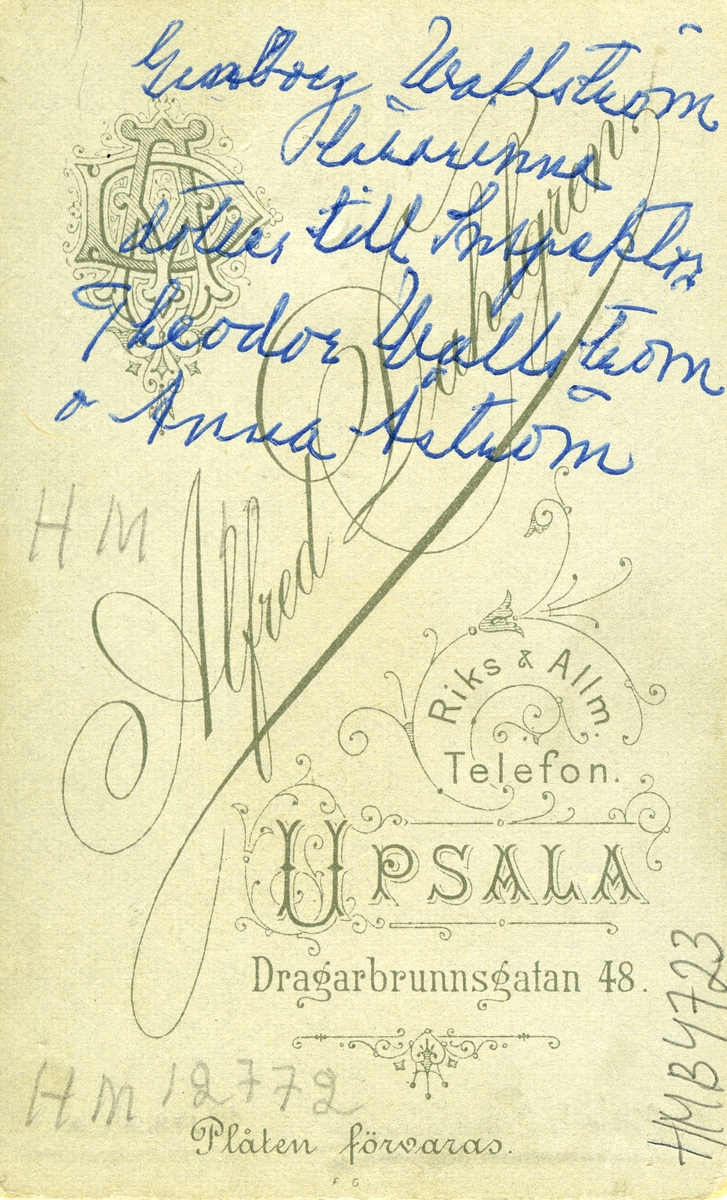 Wallström
lärarinna
dotter till Inspektor
Theodor Wallström
o Anna Åström
Alfred Dahlgren.
HM
Riks & Allm.
Telefon.
UPSALA
Dragarbrunnsgatan 48.
HM 12772
HMB4723
Plåten förvaras.
F G